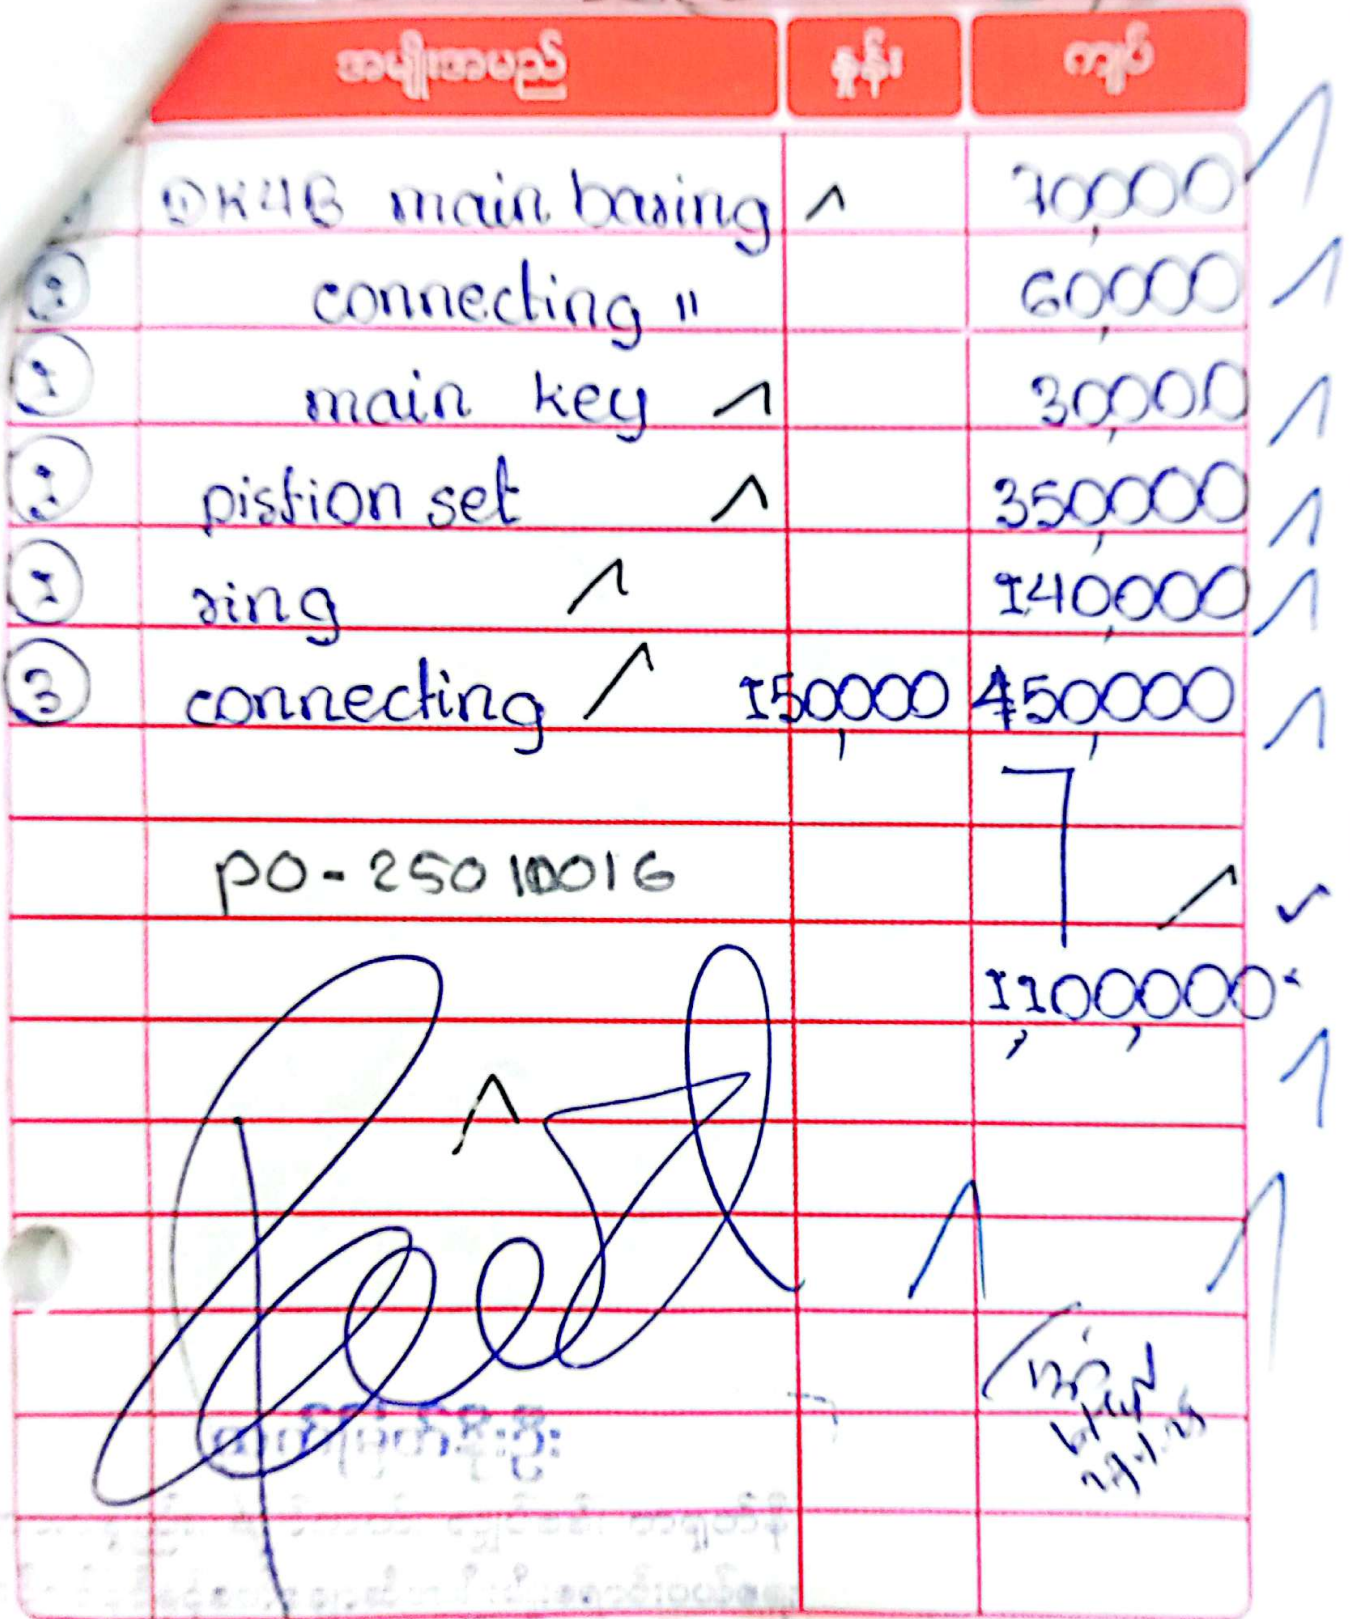 အမျိုးအမည် နှုန်း ကျပ်
DK4B main baring 70,000
connecting " 60,000
1 main key 30,000
1 pistion set 350,000
1 ring 140,000
3 connecting 150,000 450,000
PO-25010016
1,100,000